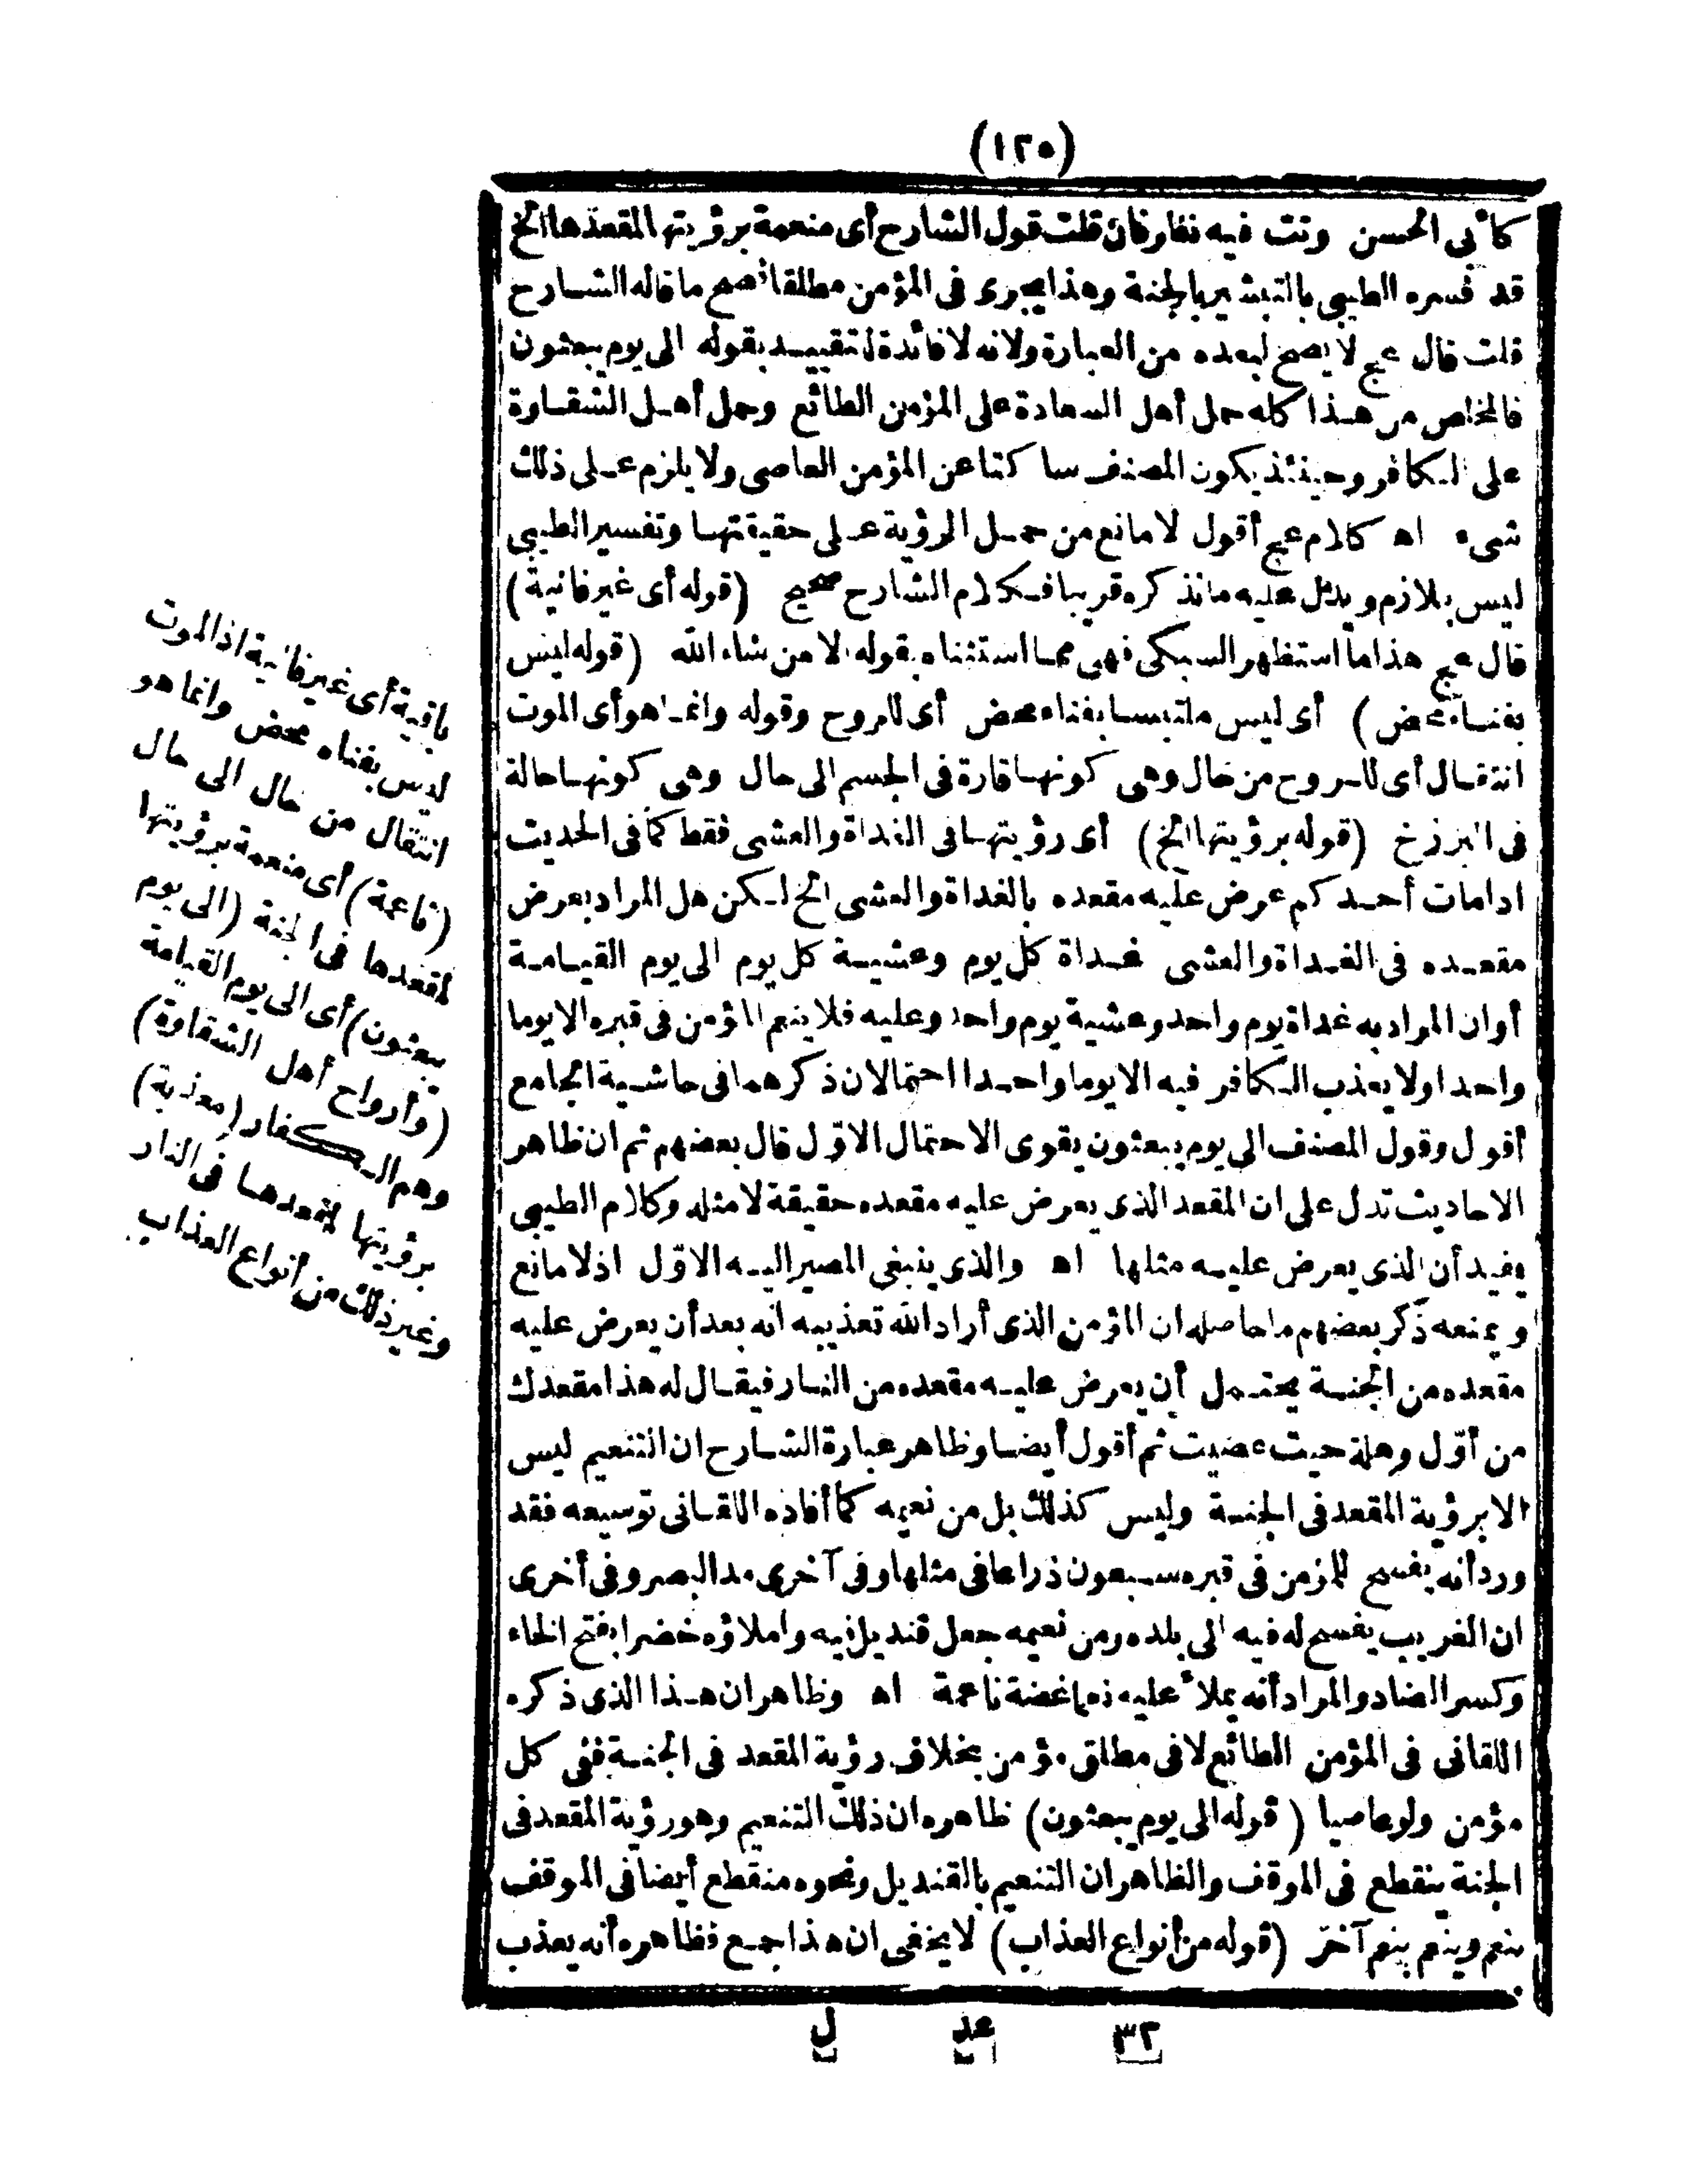 (١٢٥)
كأبى الحسن وتت فيه نظر فان قلت قول الشارح أى منعمة برؤيتها لمقعدها الخ
قد فسره الطيبى بالتبشير بالجنة وهذا يجرى فى المؤمن مطلقا فصح ما قاله الشارح
قلت قال عج لا يصح لبعده من العبارة ولانه لا فائدة لتقييد بقوله الى يوم يبعثون
فالمخلص من هذا كله حمل أهل السعادة على المؤمن الطائع وحمل أهل الشقاوة
على الكافر وحينئذ يكون المصنف ساكتا عن المؤمن العاصى ولا يلزم على ذلك
شىء اه كلام عج أقول لا مانع من حمل الرؤية على حقيقتها وتفسير الطيبى
ليس بلازم ويدل عليه ما نذكره قريبا فكلام الشارح صحيح (قوله أى غير فانية)
قال عج هذا ما استظهر السبكى فهى مما استثناه بقوله الا من شاء الله (قوله ليس
بفناء محض) أى ليس ملتبسا بفناء محض أى للروح وقوله وانما هو أى الموت
انتقال أى للروح من حال وهى كونها قارة فى الجسم الى حال وهى كونها حالة
فى البرزخ (قوله برؤيتها الخ) أى رؤيتها فى الغداة والعشى فقط كما فى الحديث
اذا مات أحدكم عرض عليه مقعده بالغداة والعشى الخ لكن هل المراد بعرض
مقعده فى الغداة والعشى غداة كل يوم وعشية كل يوم الى يوم القيامة
أو ان المراد به غداة يوم واحد وعشية يوم واحد وعليه فلا ينعم المؤمن فى قبره الا يوما
واحدا ولا يعذب الكافر فيه الا يوما واحدا احتمالان ذكرهما فى حاشية الجامع
أقول وقول المصنف الى يوم يبعثون يقوى الاحتمال الاوّل قال بعضهم ثم ان ظاهر
الاحاديث تدل على ان المقعد الذى يعرض عليه مقعده حقيقة لا مثله وكلام الطيبى
يفيد أن الذى يعرض عليه مثلها اه والذى ينبغى المصير اليه الاوّل اذ لا مانع
ويمنعه ذكر بعضهم ما حاصله ان المؤمن الذى أراد الله تعذيبه انه بعد أن يعرض عليه
مقعده من الجنة يحتمل أن يعرض عليه مقعده من النار فيقال له هذا مقعدك
من أوّل وهلة حيث عصيت ثم أقول أيضا وظاهر عبارة الشارح ان التنعيم ليس
الا برؤية المقعد فى الجنة وليس كذلك بل من نعيمه كما أفاده اللقانى توسيعه فقد
ورد أنه يفسح للمؤمن فى قبره سبعون ذراعا فى مثلها وفى آخرى مد البصر وفى أخرى
ان الغريب يفسح له فيه الى بلده ومن نعيمه جعل قنديل فيه واملاؤه خضرا بفتح الخاء
وكسر الضاد والمراد أنه يملأ عليه نعما غضة ناعمة اه وظاهر ان هذا الذى ذكره
اللقانى فى المؤمن الطائع لا فى مطلق مؤمن بخلاف رؤية المقعد فى الجنة ففى كل
مؤمن ولو عاصيا (قوله الى يوم يبعثون) ظاهره ان ذلك التنعيم وهو رؤية المقعد فى
الجنة ينقطع فى الموقف والظاهر ان التنعيم بالقنديل ونحوه منقطع أيضا فى الموقف
نعم وينعم بنعم آخر (قوله من أنواع العذاب) لا يخفى ان هذا جمع فظاهره أنه يعذب
باقية أى غير فانية اذ الموت
ليس بفناء محض وانما هو
انتقال من حال الى حال
(ناعمة) أى منعمة برؤيتها
لمقعدها فى الجنة (الى يوم
يبعثون) أى الى يوم القيامة
(وأرواح أهل الشقاوة)
وهم الكفار (معذبة)
برؤيتها لمقعدها فى النار
وغير ذلك من أنواع العذاب
٣٢ عد ل